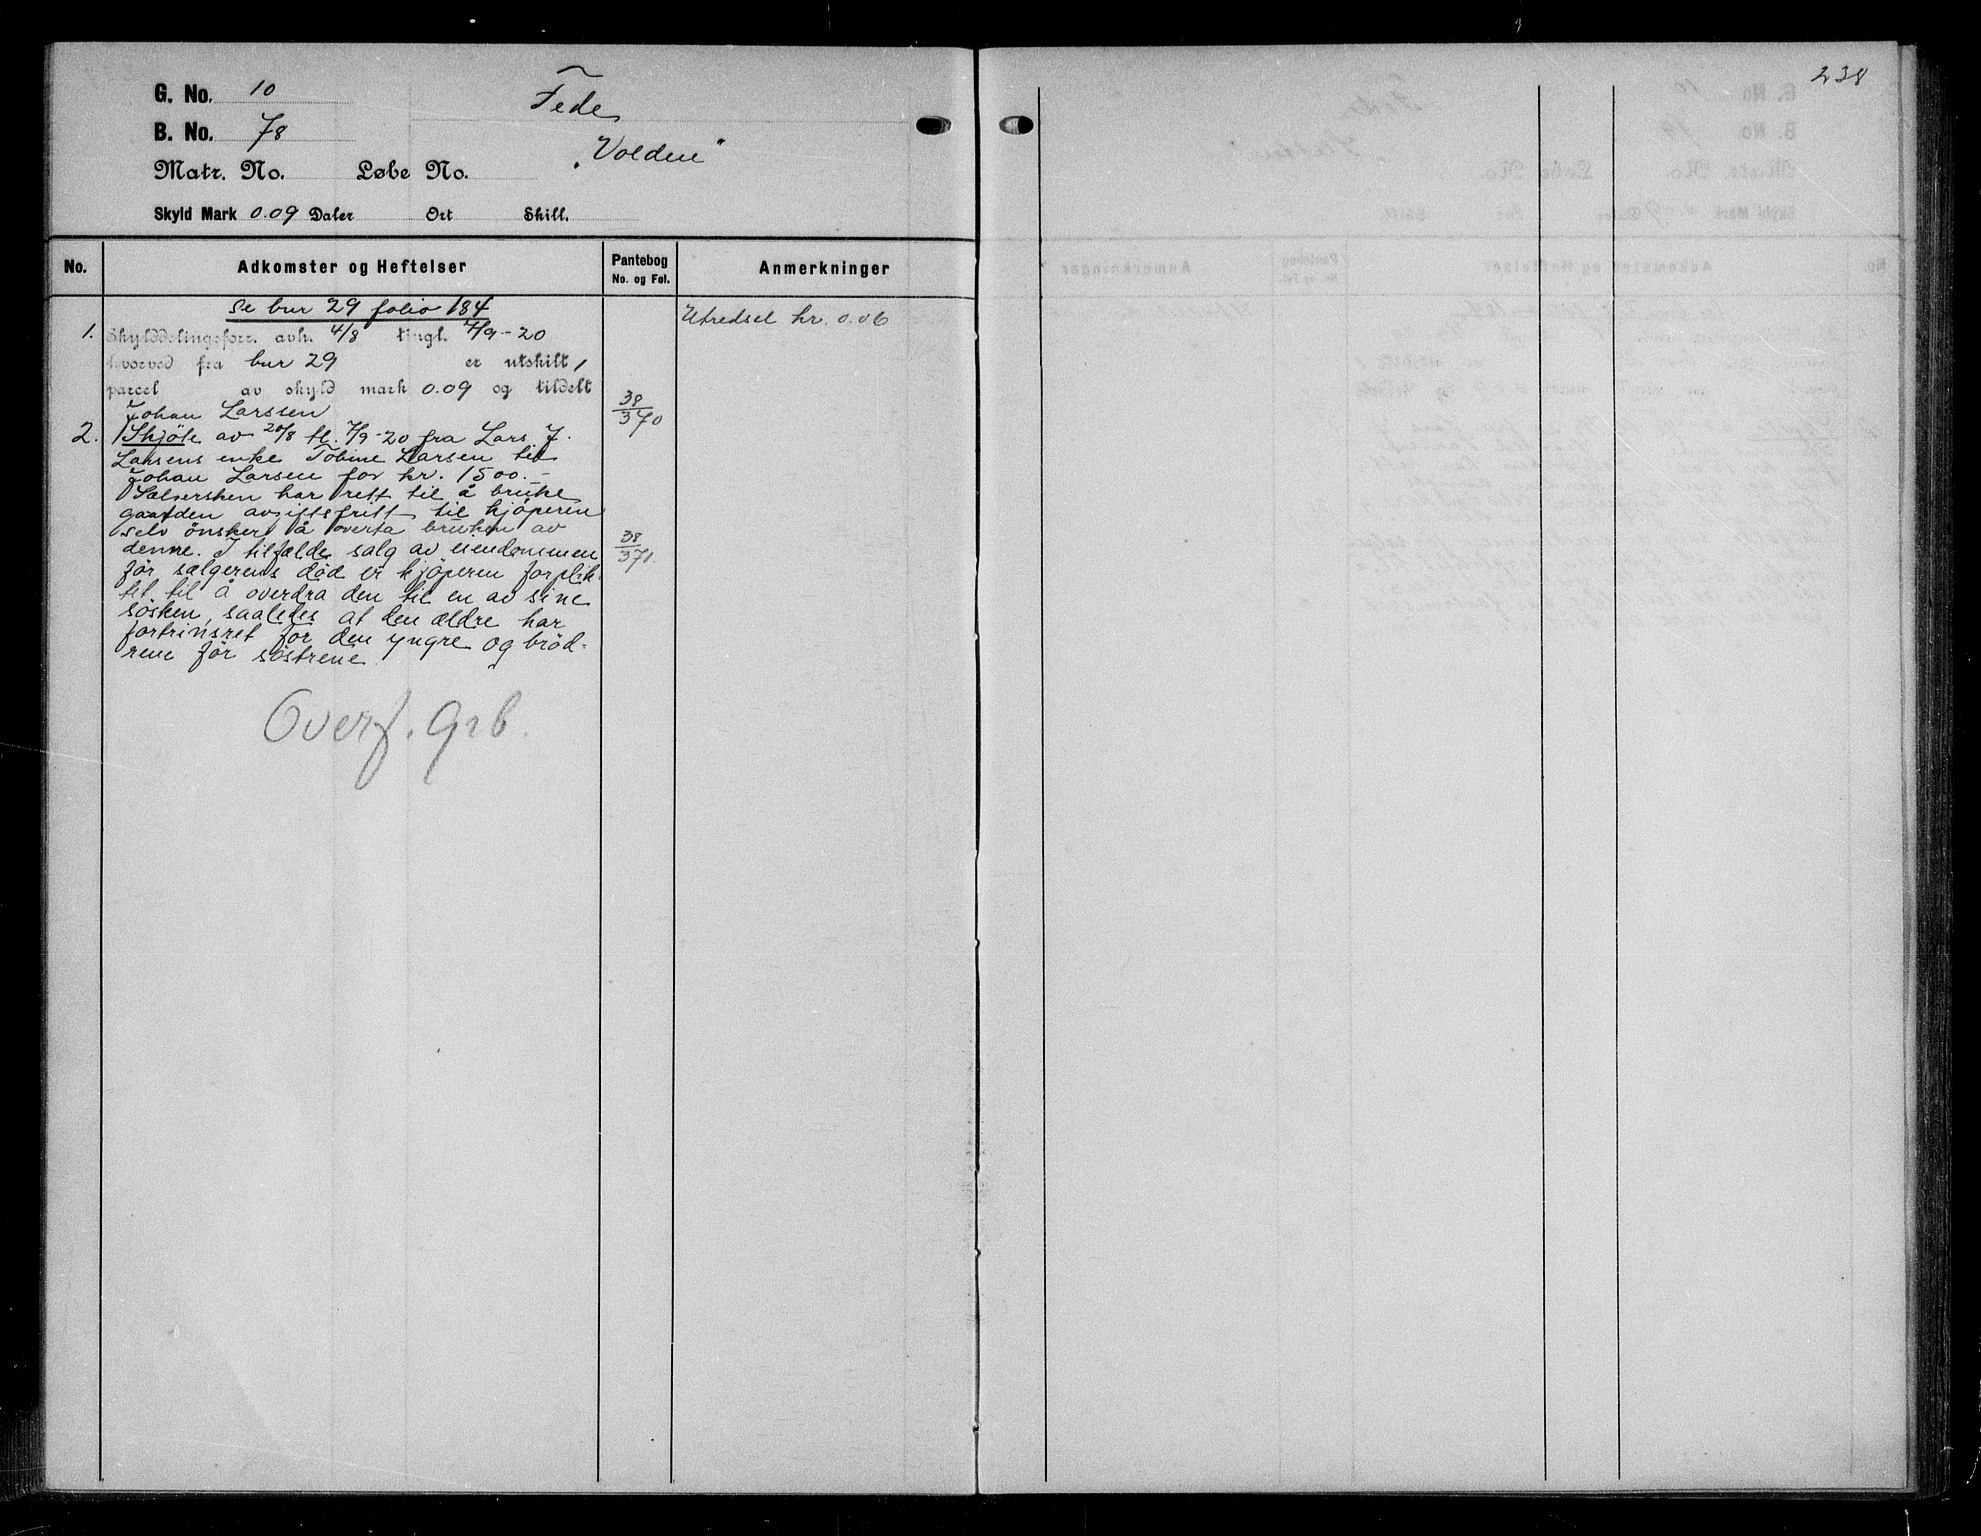 G. No. 10
Fede
B. No. 78
„Volden“
Matr. No. Løbe No.
Skyld Mark 0.09 Daler Ort Skill.
No. Adkomster og Heftelser Pantebog No. og Fol. Anmerkninger
se bnr 29 folio 184
Utredsel kr. 0.06
1. Skylddelingsforr. avh. 4/8 tingl. 7/9-20
hvorved fra bnr 29 er utskilt 1
parcel av skyld mark 0.09 og tildelt
Johan Larssen 38/370
2. Skjöte av 20/8 tl. 7/9-20 fra Lars J.
Larsens enke Tobine Larsen til
Johan Larsen for kr. 1500.-
Sælgersken har rett til å bruke
gaarden avgiftsfritt til kjøperen
selv önsker å overta bruken av
denne. I tilfælde salg av eiendommen 38/371.
för sælgerens död er kjöperen forplik-
tet til å overdra den til en av sine
sösken, saaledes at den ældre har
fortrinsret for den yngre og bröd-
rene för söstrene.
Overf. grb.
238